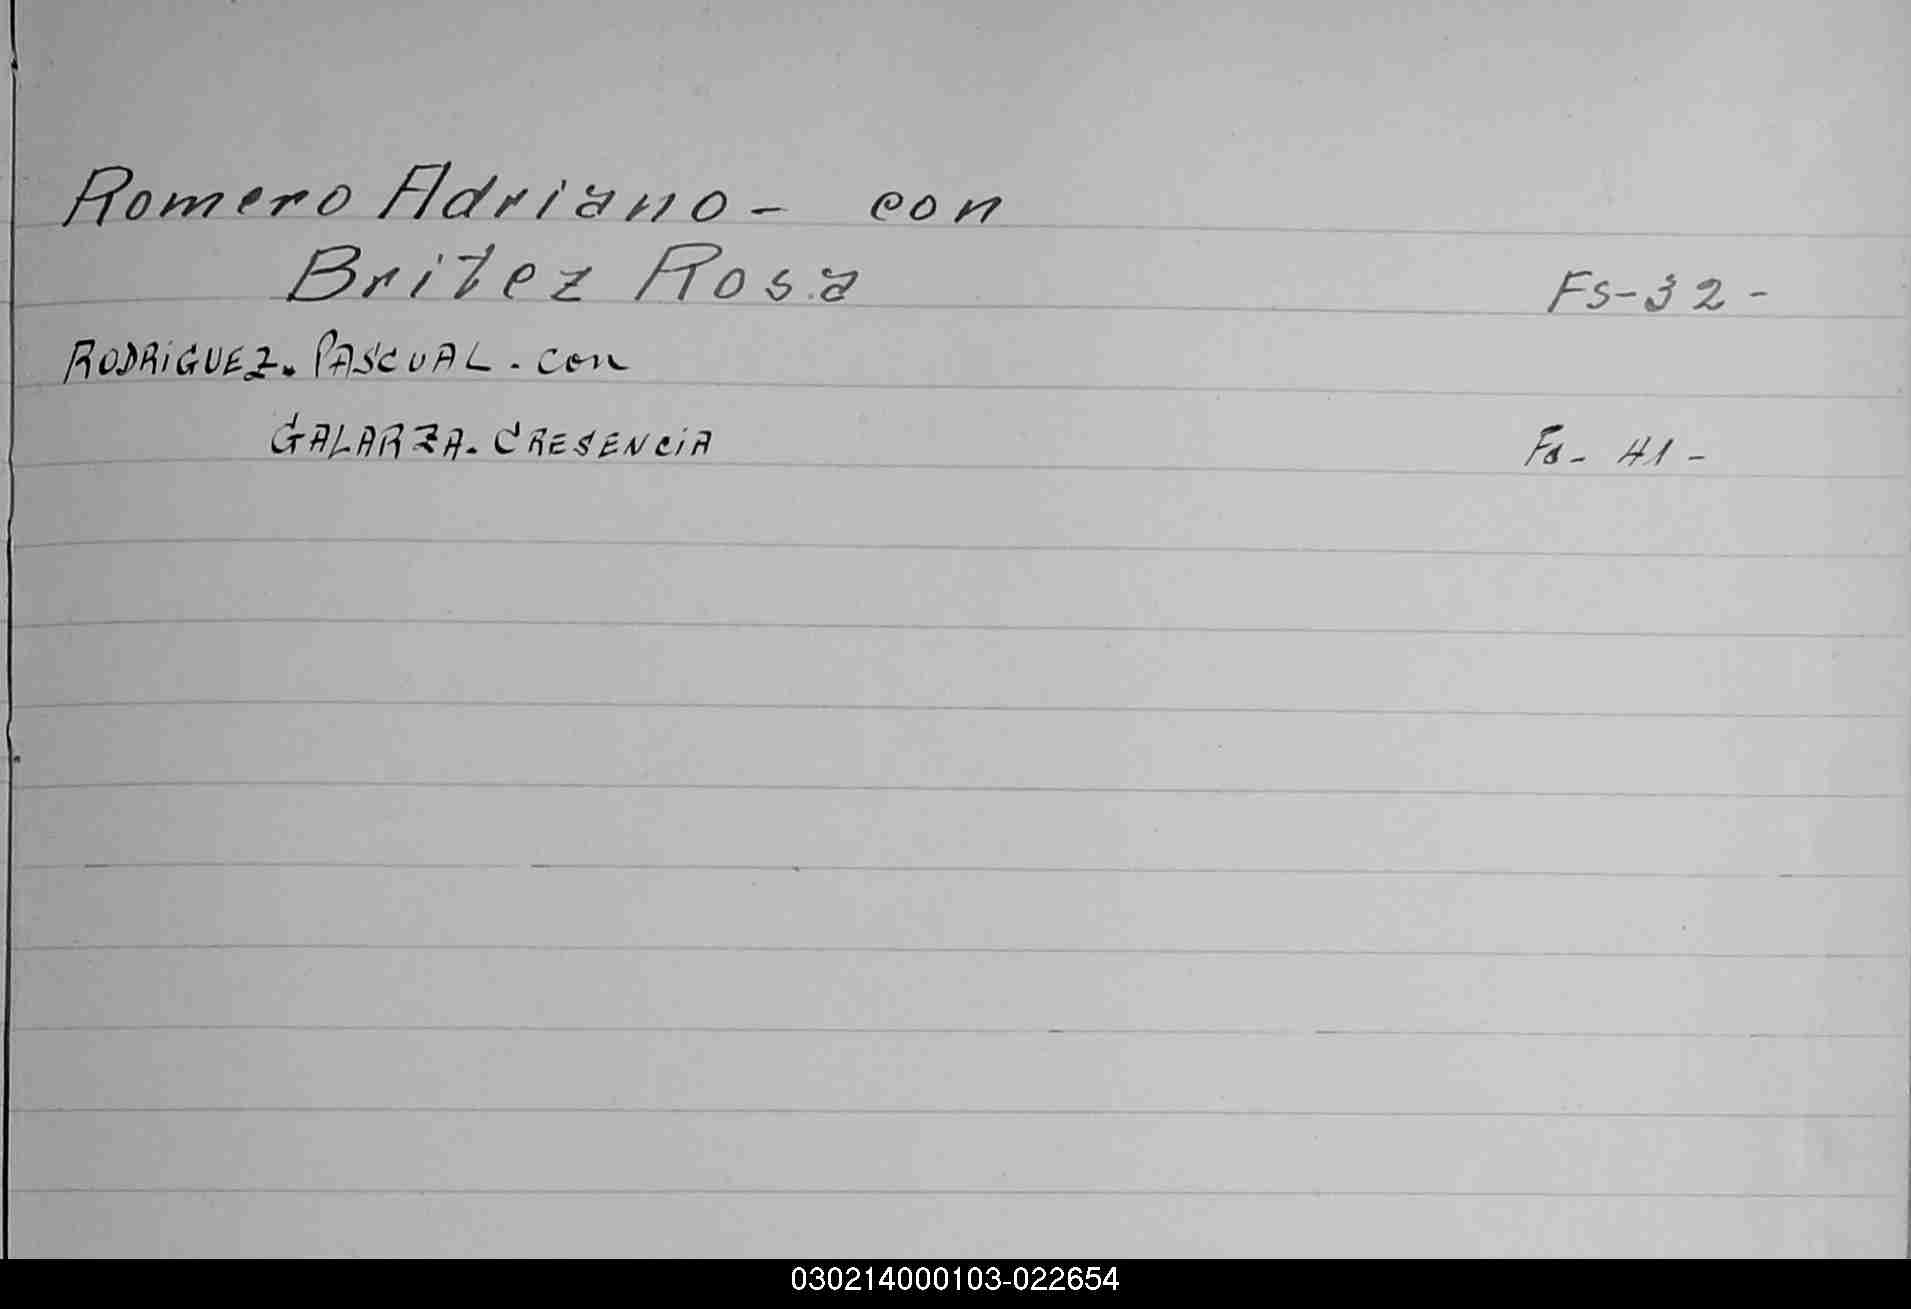 Romero Adriano - con
Britez Rosa Fs-32-
RODRiGUEZ. PASCUAL. con
GALARZA. CRESENCiA Fs- 41-
030214000103-022654